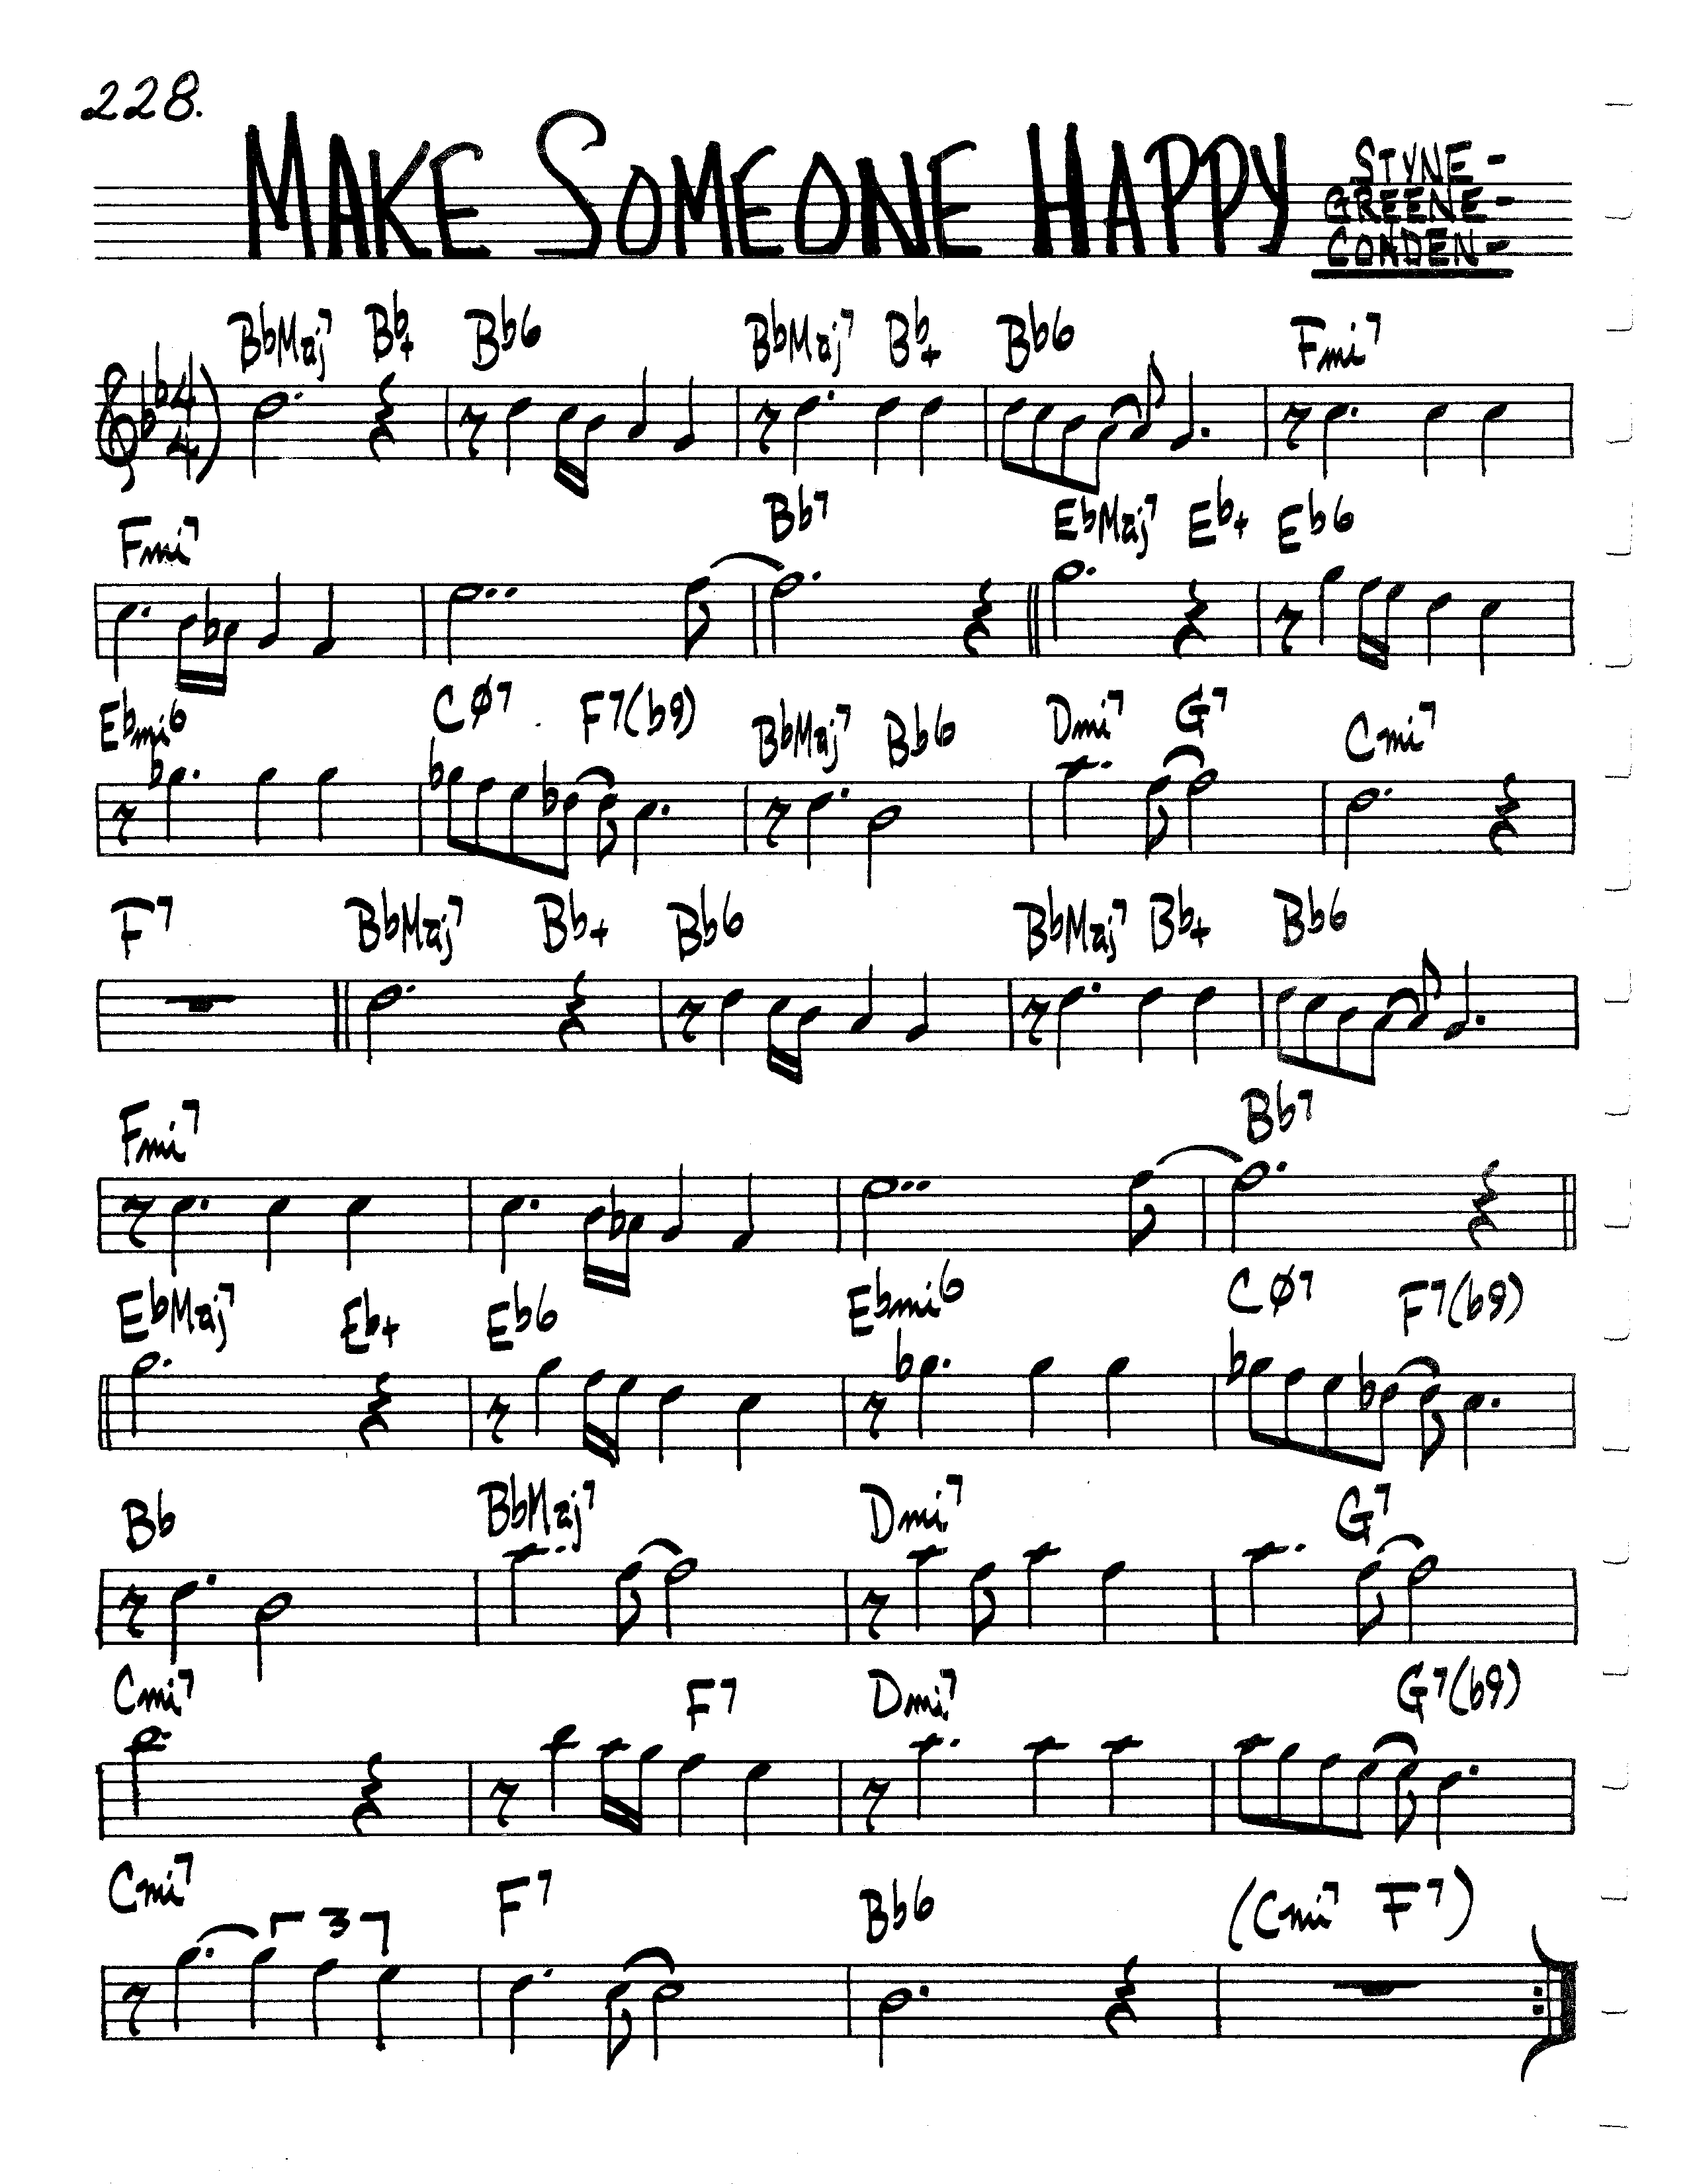 228.
MAKE SOMEONE HAPPY
STYNE -
GREENE -
CONDEN -
BbMaj7 Bb+ Bb6 BbMaj7 Bb+ Bb6 Fmi7
4
4
Fmi7 Bb7 EbMaj7 Eb+ Eb6
Ebmi6 CØ7 F7(b9) BbMaj7 Bb6 Dmi7 G7 Cmi7
F7 BbMaj7 Bb+ Bb6 BbMaj7 Bb+ Bb6
Fmi7 Bb7
EbMaj7 Eb+ Eb6 Ebmi6 CØ7 F7(b9)
Bb BbMaj7 Dmi7 G7
Cmi7 F7 Dmi7 G7(b9)
Cmi7 F7 Bb6 (Cmi7 F7)
3